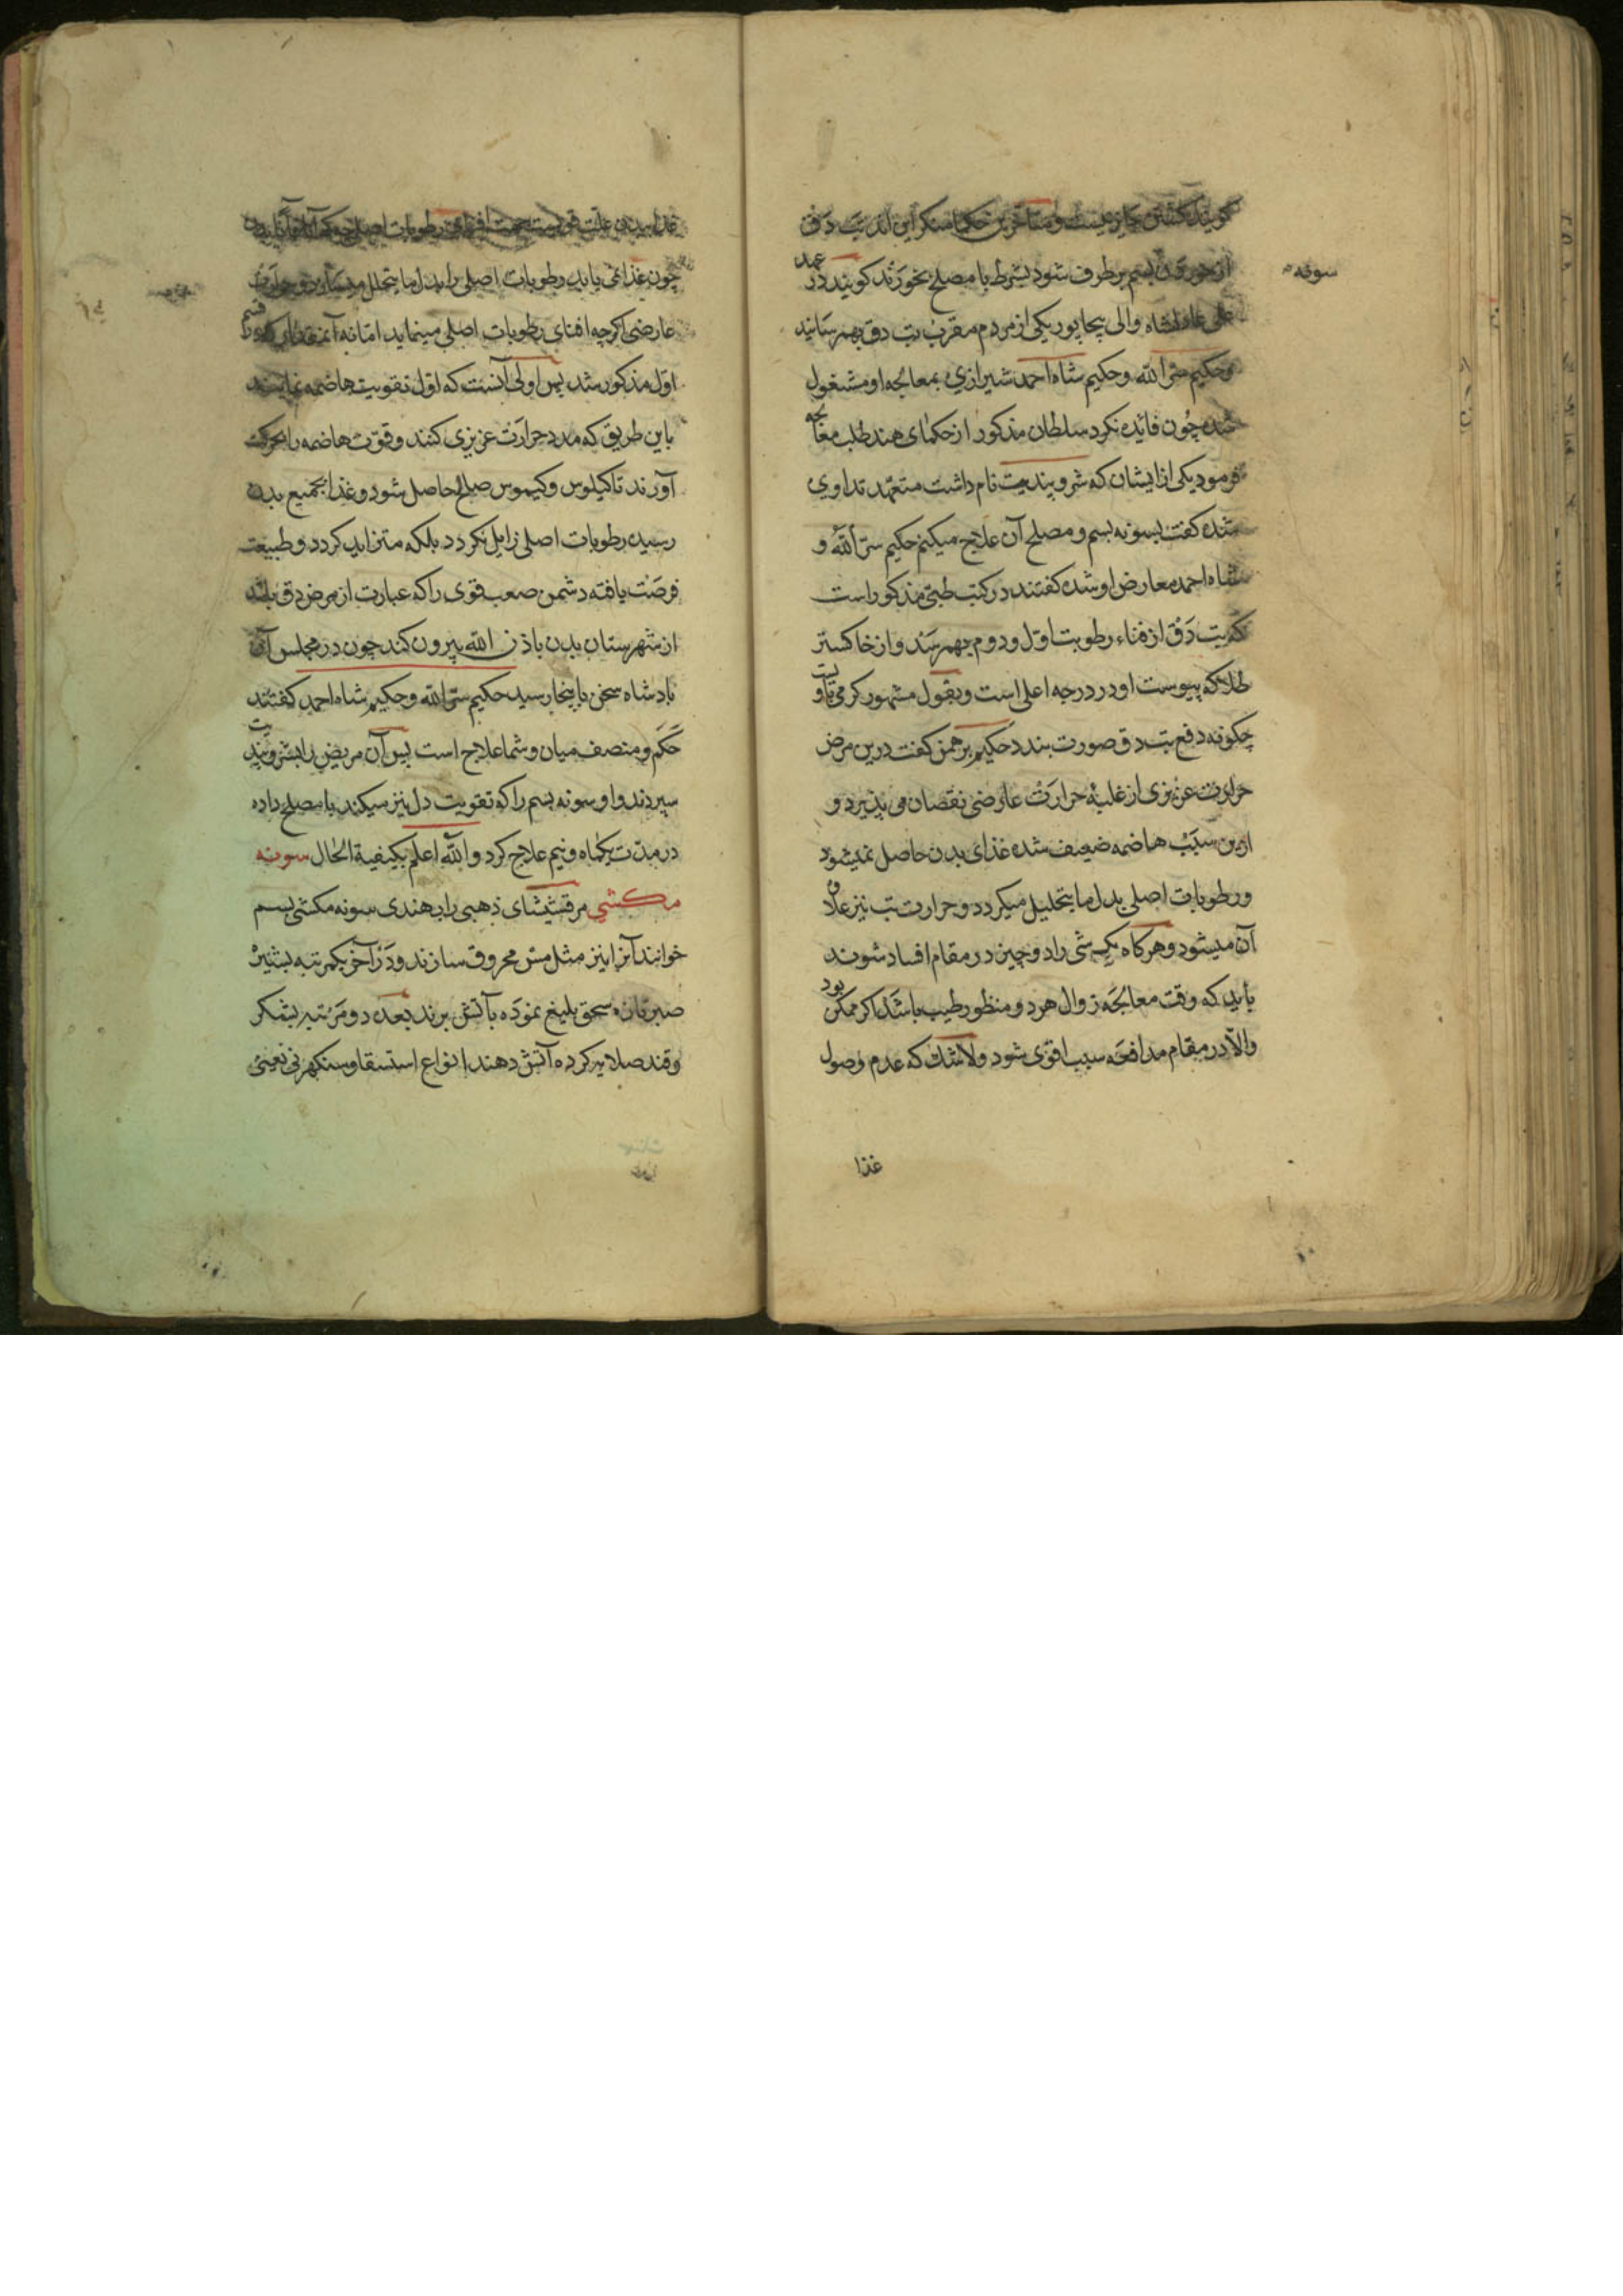 گویند کشتن جایز نیست و متأخرین حکما منکر این اند تب دق
از خوردن بسم برطرف شود بشرط با مصلح بخورند کویند در عهد
سونه
علی عادلشاه والی بیجاپور یکی از مردم مقرب تب دق بهم رسانید
وحکیم سرّ اللّه وحکیم شاه احمد شیرازی بمعالجه او مشغول
شده چون فائده نکرد سلطان مذکور از حکمای هند طلب معالجه
فرمود یکی از ایشان که شرو پندیت نام داشت متعهد تداوی
شده کفت بسونه بسم و مصلح آن علاج میکنم حکیم سرّ اللّه و
شاه احمد معارض او شده کفتند در کتب طبی مذکور است
که تب دق از فناء رطوبت اول و دوم بهم رسد و از خاکستر
طلا که یبوست او در درجه اعلی است و بقول مشهور کرمی
چکونه دفع تب دق صورت بندد حکیم برهمن کفت درین مرض
حرارت عزیزی از غلبهٔ حرارت عارضی نقصان می پذیرد و
ازین سبب هاضمه ضعیف شده غذای بدن حاصل نمیشود
و رطوبات اصلی بدل مایتحلیل میکردد و حرارت تب نیز علاوه
آن میشود و هرکاه یک شی را دو چیز در مقام افساد شوند
باید که وقت معالجه زوال هر دو منظور طبیب باشد اکر ممکن بود
والّا در مقام مدافعه سبب اقوی شود ولاشک که عدم وصول
غذا
غذا ببدن علت قوی است جهت افنای رطوبات اصلی
چون غذا نمی یابد رطوبات اصلی را بدل مایتحلل میسازد و حرارت
عارضی اکرچه افنای رطوبات اصلی مینماید اما نه آنقدر که قسم
اول مذکور شد پس اولی آنست که اول تقویت هاضمه نمایند
باین طریق که مدد حرارت عزیزی کنند و قوت هاضمه را بحرکت
آورند تا کیلوس و کیموس صالح حاصل شود و غذا بجمیع بدن
رسیده رطوبات اصلی زایل نکردد بلکه متزاید کردد و طبیعت
فرصت یافته دشمن صعب قوی را که عبارت از مرض دق باشد
از شهرستان بدن باذن اللّه بیرون کند چون در مجلس آن
بادشاه سخن باینجا رسید حکیم سرّ اللّه وحکیم شاه احمد کفتند
حکم و منصف میان و شما علاج است پس آن مریض را بشرو پندیت
سپردند و او سونه بسم را که تقویت دل نیز میکند با مصلح داده
در مدّت یکماه و نیم علاج کرد واللّه اعلم بکیفیة الحال سونه
مکشی مرقشیشای ذهبی را بهندی سونه مکشی بسم
خوانند آنرا نیز مثل مس محروق سازند و در آخر یکمرتبه بشیره
صبر تازه سحق بلیغ نموده بآتش برند بعده دو مرتبه بشکر
وقند صلایه کرده آتش دهند انواع استسقا وسنکهرنی یعنی